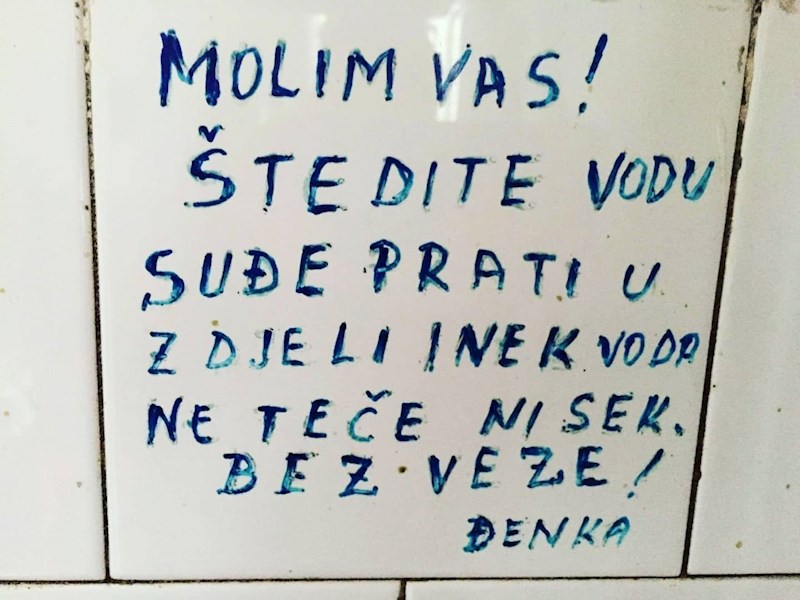 MOLIM VAS!
ŠTEDITE VODU
SUĐE PRATI U
ZDJELI INEK VODA
NE TEČE NI SEK.
BEZ VEZE!
ĐENKA